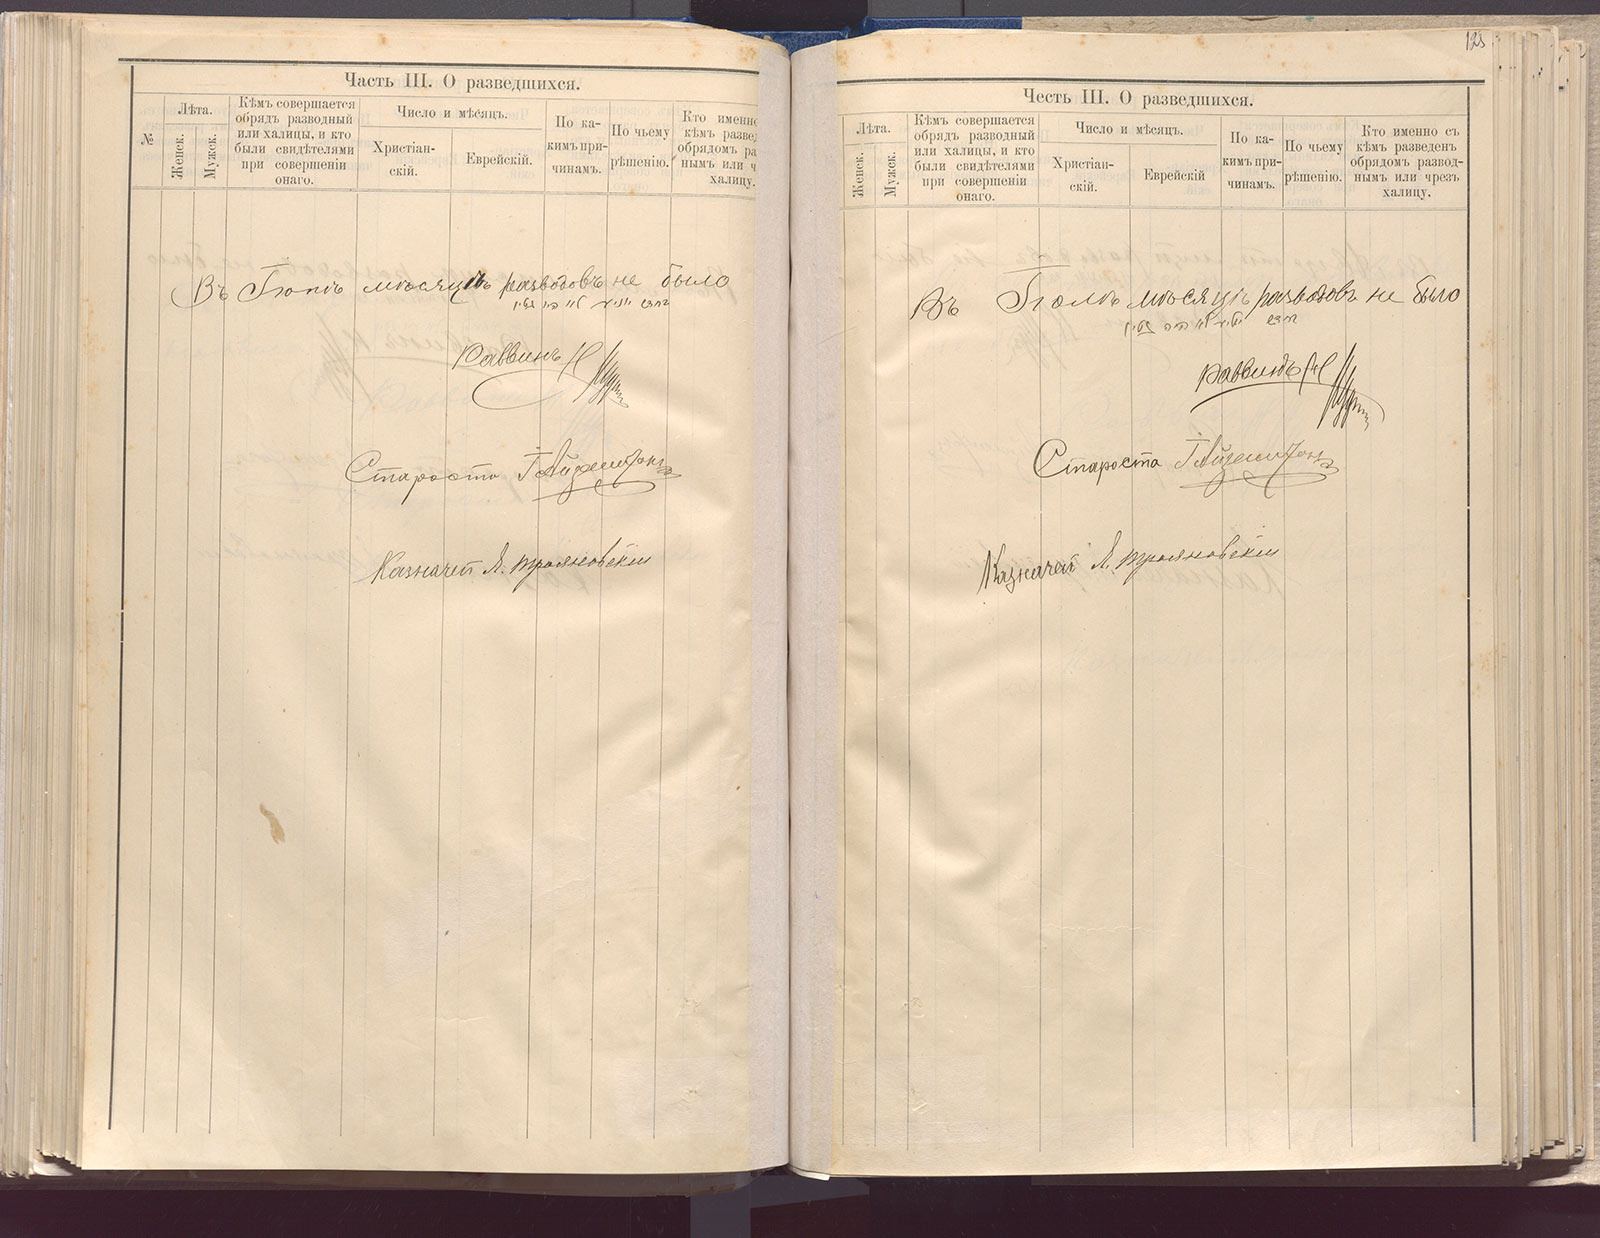 Часть III. О разведшихся.
№
Лѣта.
Женск.
Мужск.
Кѣмъ совершается
обрядъ разводный
или халицы, и кто
были свидѣтелями
при совершеніи
онаго.
Число и мѣсяцъ.
Христіан-
скій.
Еврейскій.
По ка-
кимъ при-
чинамъ.
По чьему
рѣшенію.
Кто именно
кѣмъ развед
обрядомъ ра
нымъ или ч
халицу.
Въ Іюнѣ мѣсяцѣ разводовъ не было
Раввинъ
Староста
Казначей Я. Трояновскій
123
Честь III. О разведшихся.
Лѣта.
Женск.
Мужск.
Кѣмъ совершается
обрядъ разводный
или халицы, и кто
были свидѣтелями
при совершеніи
онаго.
Число и мѣсяцъ.
Христіан-
скій.
Еврейскій
По ка-
кимъ при-
чинамъ.
По чьему
рѣшенію.
Кто именно съ
кѣмъ разведенъ
обрядомъ развод-
нымъ или чрезъ
халицу.
Въ Іюлѣ мѣсяцѣ разводовъ не было
Раввинъ
Староста
Казначей Я. Трояновскій